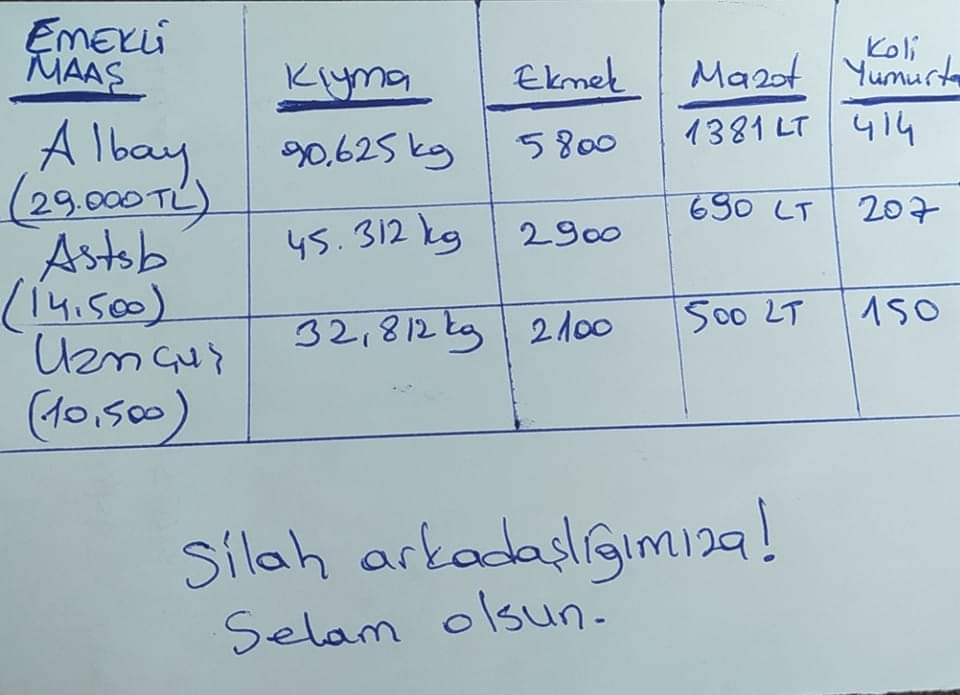 EMEKLİ
MAAŞ
Kıyma
Ekmek
Mazot
Koli
Yumurta
Albay
(29.000 TL)
90,625 kg
5800
1381 LT
414
Astsb
(14,500)
45.312 kg
2900
690 LT
207
Uzmçvş
(10,500)
32,812 kg
2100
500 LT
150
Silah arkadaşlığımıza!
Selam olsun.